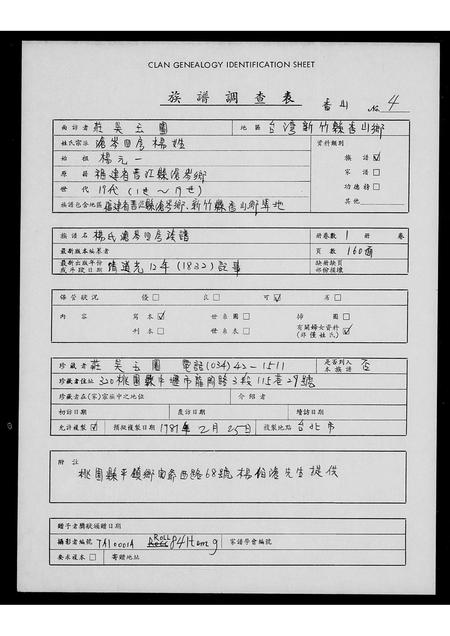 CLAN GENEALOGY IDENTIFICATION SHEET
族譜調查表 香山 No. 4
面訪者 莊吳玉圖 地區 台灣新竹縣香山鄉
姓氏宗派 滄岑四房楊姓 資料類別
始祖 楊元一 族譜☑
原籍 福建省晉江縣滄岑鄉 家譜□
世代 19代 (1世~19世) 功德榜□
族譜包含地區 福建省晉江縣滄岑鄉、新竹縣香山鄉等地 其他
族譜名 楊氏滄岑四房族譜 冊卷數 1 冊 卷
最新版本編纂者 頁數 160面
最新出版年份或手段日期 清道光12年 (1832) 設事 缺冊缺頁部份損壞
保管狀況 優□ 良□ 可☑ 劣□
內容 寫本☑ 世系圖□ 掃圖□
刊本□ 世系表□ 有關婦女資料(非僅姓氏)☑
珍藏者 莊吳玉圖 電話(034)42-1511 是否列入本族譜 否
珍藏者住址 320桃園縣中壢市龍岡路3段115巷29號
珍藏者在(家)宗族中之地位 介紹者
初訪日期 應訪日期 續訪日期
允許複製☑ 預擬複製日期 1981年2月25日 複製地點 台北市
附註
桃園縣平鎮鄉 西路68號楊伯滄先生提供
贈予者獎狀頒贈日期
攝影者編號 TA10001A ROLL 84 Item 9 家譜學會編號
要求複本□ 寄贈地址